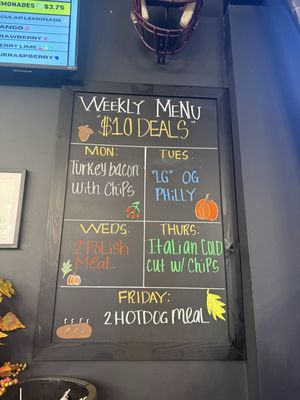 EMONADES $3.75
GULAR LEMONADE
ANGO
RAWBERRY
ERRY LIME
UERASPBERRY
WEEKLY MENU
"$10 DEALS"
MON:
Turkey bacon
With Chips
TUES:
"LG" OG
PHILLY
WEDS:
2 Polish
Meal
THURS:
Italian Cold
cut w/ Chips
FRIDAY:
2 HOTDOG Meal